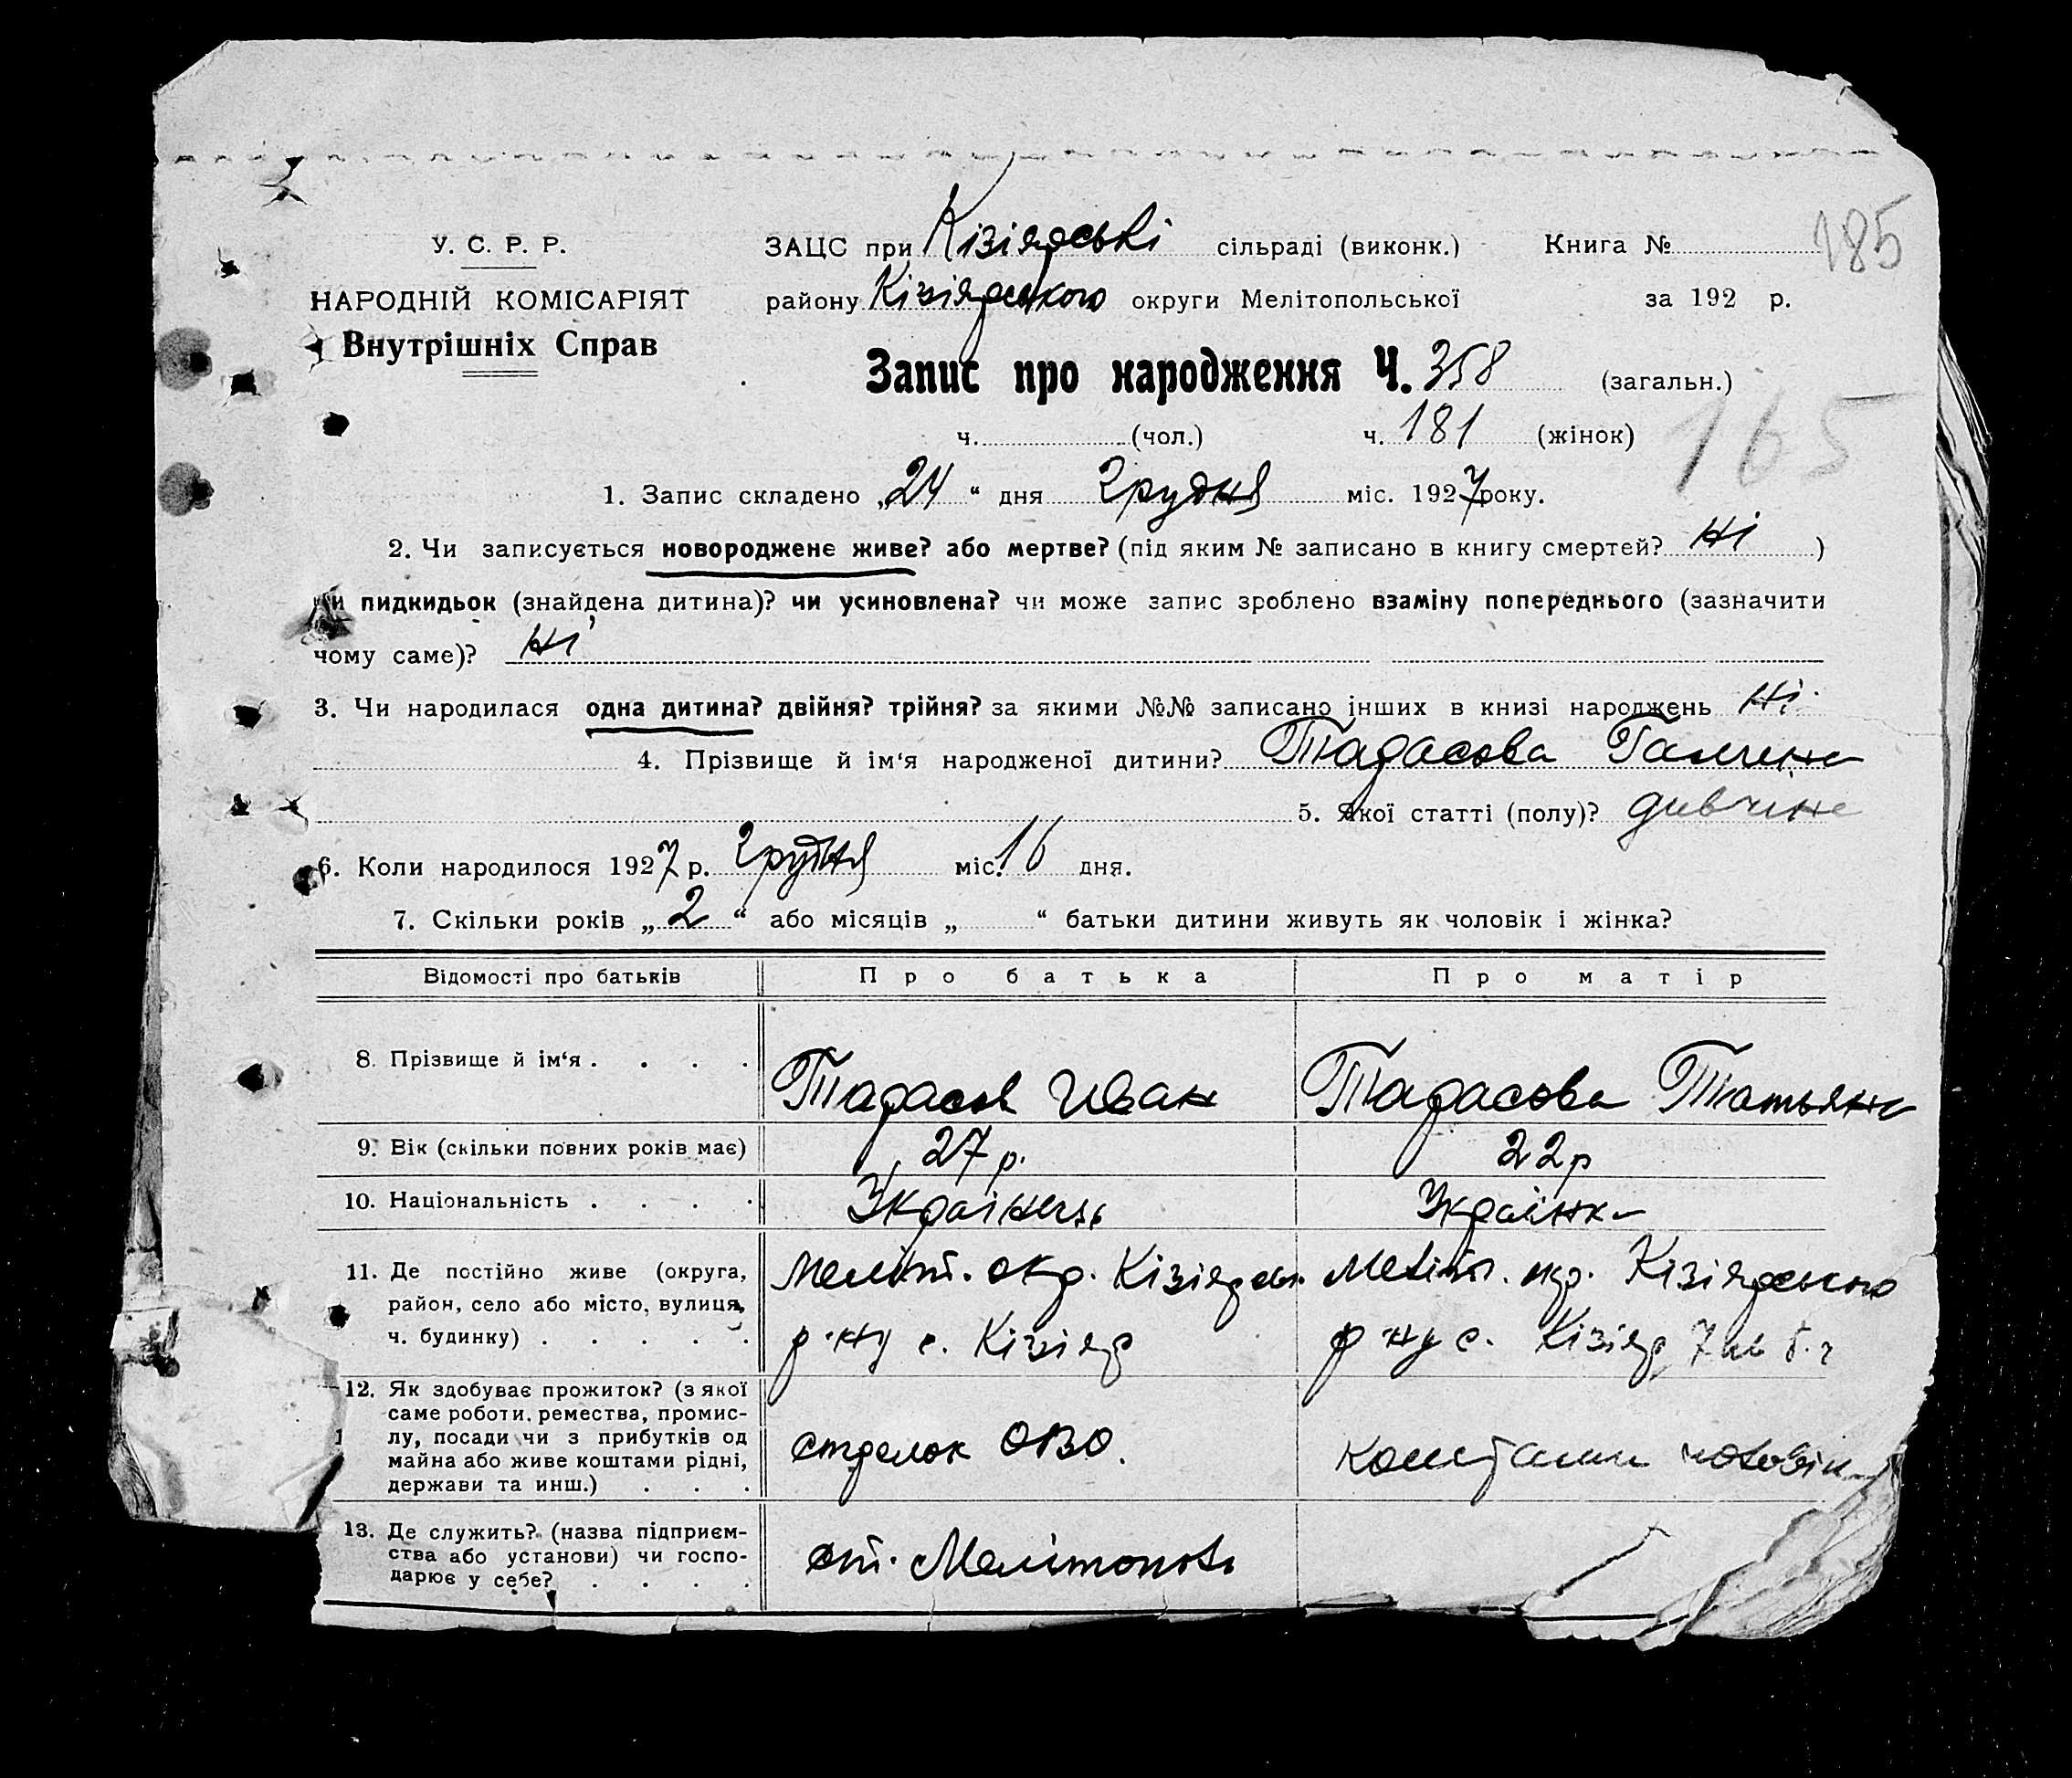 У. С. Р. Р.
НАРОДНІЙ КОМІСАРІЯТ
Внутрішніх Справ
ЗАЦС при Кізіярські сільраді (виконк.) Книга № 185
району Кізіярського округи Мелітопольської за 192 р.
Запис про народження Ч. 358 (загальн.)
ч. (чол.) ч. 181 (жінок) 165
1. Запис складено „24“ дня Грудня міс. 1927 року.
2. Чи записується новороджене живе? або мертве? (під яким № записано в книгу смертей? Ні )
чи пидкидьок (знайдена дитина)? чи усиновлена? чи може запис зроблено взаміну попереднього (зазначити
чому саме)? Ні
3. Чи народилася одна дитина? двійня? трійня? за якими №№ записано інших в книзі народжень Ні
4. Прізвище й ім‘я народженої дитини? Тарасова Галина
5. Якої статті (полу)? дивчина
6. Коли народилося 1927 р. Грудня міс. 16 дня.
7. Скільки років „2“ або місяців „ “ батьки дитини живуть як чоловік і жінка?
Відомості про батьків Про батька Про матір
8. Прізвище й ім‘я . . . . Тарасов Иван Тарасова Татьяна
9. Вік (скільки повних років має) 27 р. 22 р
10. Національність . . . . Українець Українка
11. Де постійно живе (округа,
район, село або місто, вулиця,
ч. будинку) . . . . .
Меліт. окр. Кізіярськ.
р-ну с. Кізіяр
Меліт. окр. Кізіярського
р-ну с. Кізіяр 7
12. Як здобуває прожиток? (з якої
саме роботи, ремества, промис-
лу, посади чи з прибутків од
майна або живе коштами рідні,
держави та инш.) . . .
стрелок ОВО.
коштами чоловіка
13. Де служить? (назва підприєм-
ства або установи) чи госпо-
дарює у себе? . . . .
ст. Мелітополь